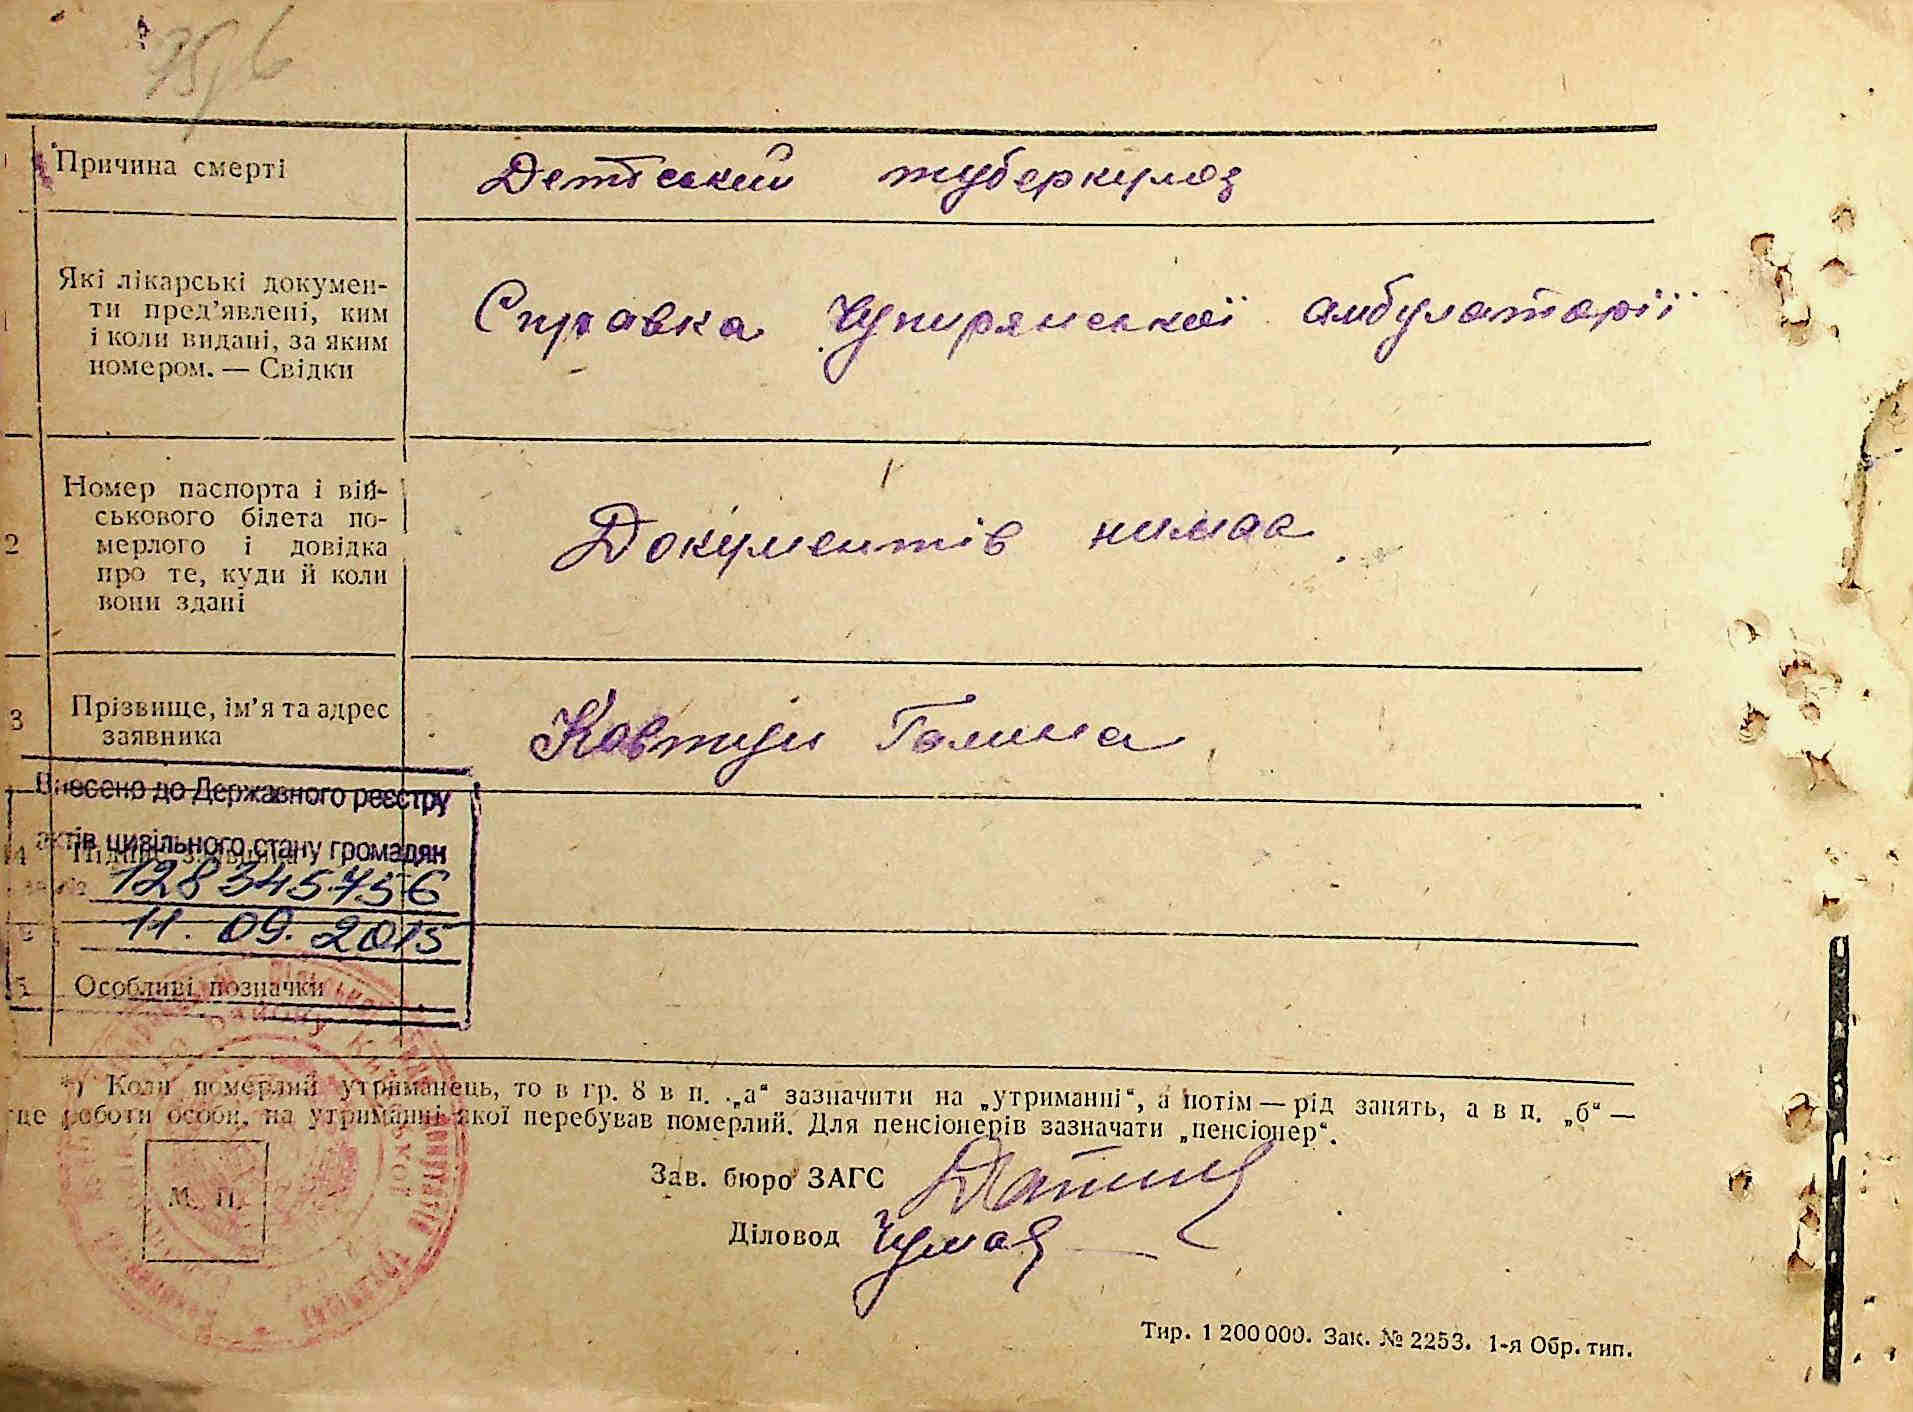 35/6
Причина смерті
Детський туберкулоз
Які лікарські докумен-
ти пред’явлені, ким
і коли видані, за яким
номером. — Свідки
Справка Чупирянської амбулаторії
2
Номер паспорта і вій-
ськового білета по-
мерлого і довідка
про те, куди й коли
вони здані
Документів нимає
3
Прізвище, ім’я та адрес
заявника
Ковтун Галина
Внесено до Державного реєстру
актів цивільного стану громадян
4
128345756
11.09.2015
Особливі позначки
*) Коли померлий утриманець, то в гр. 8 в п. „а“ зазначити на „утриманні“, а потім — рід занять, а в п. „б“ —
це роботи особи, на утриманні якої перебував померлий. Для пенсіонерів зазначати „пенсіонер“.
М. П.
Зав. бюро ЗАГС
Діловод
Тир. 1 200 000. Зак. № 2253. 1-я Обр. тип.